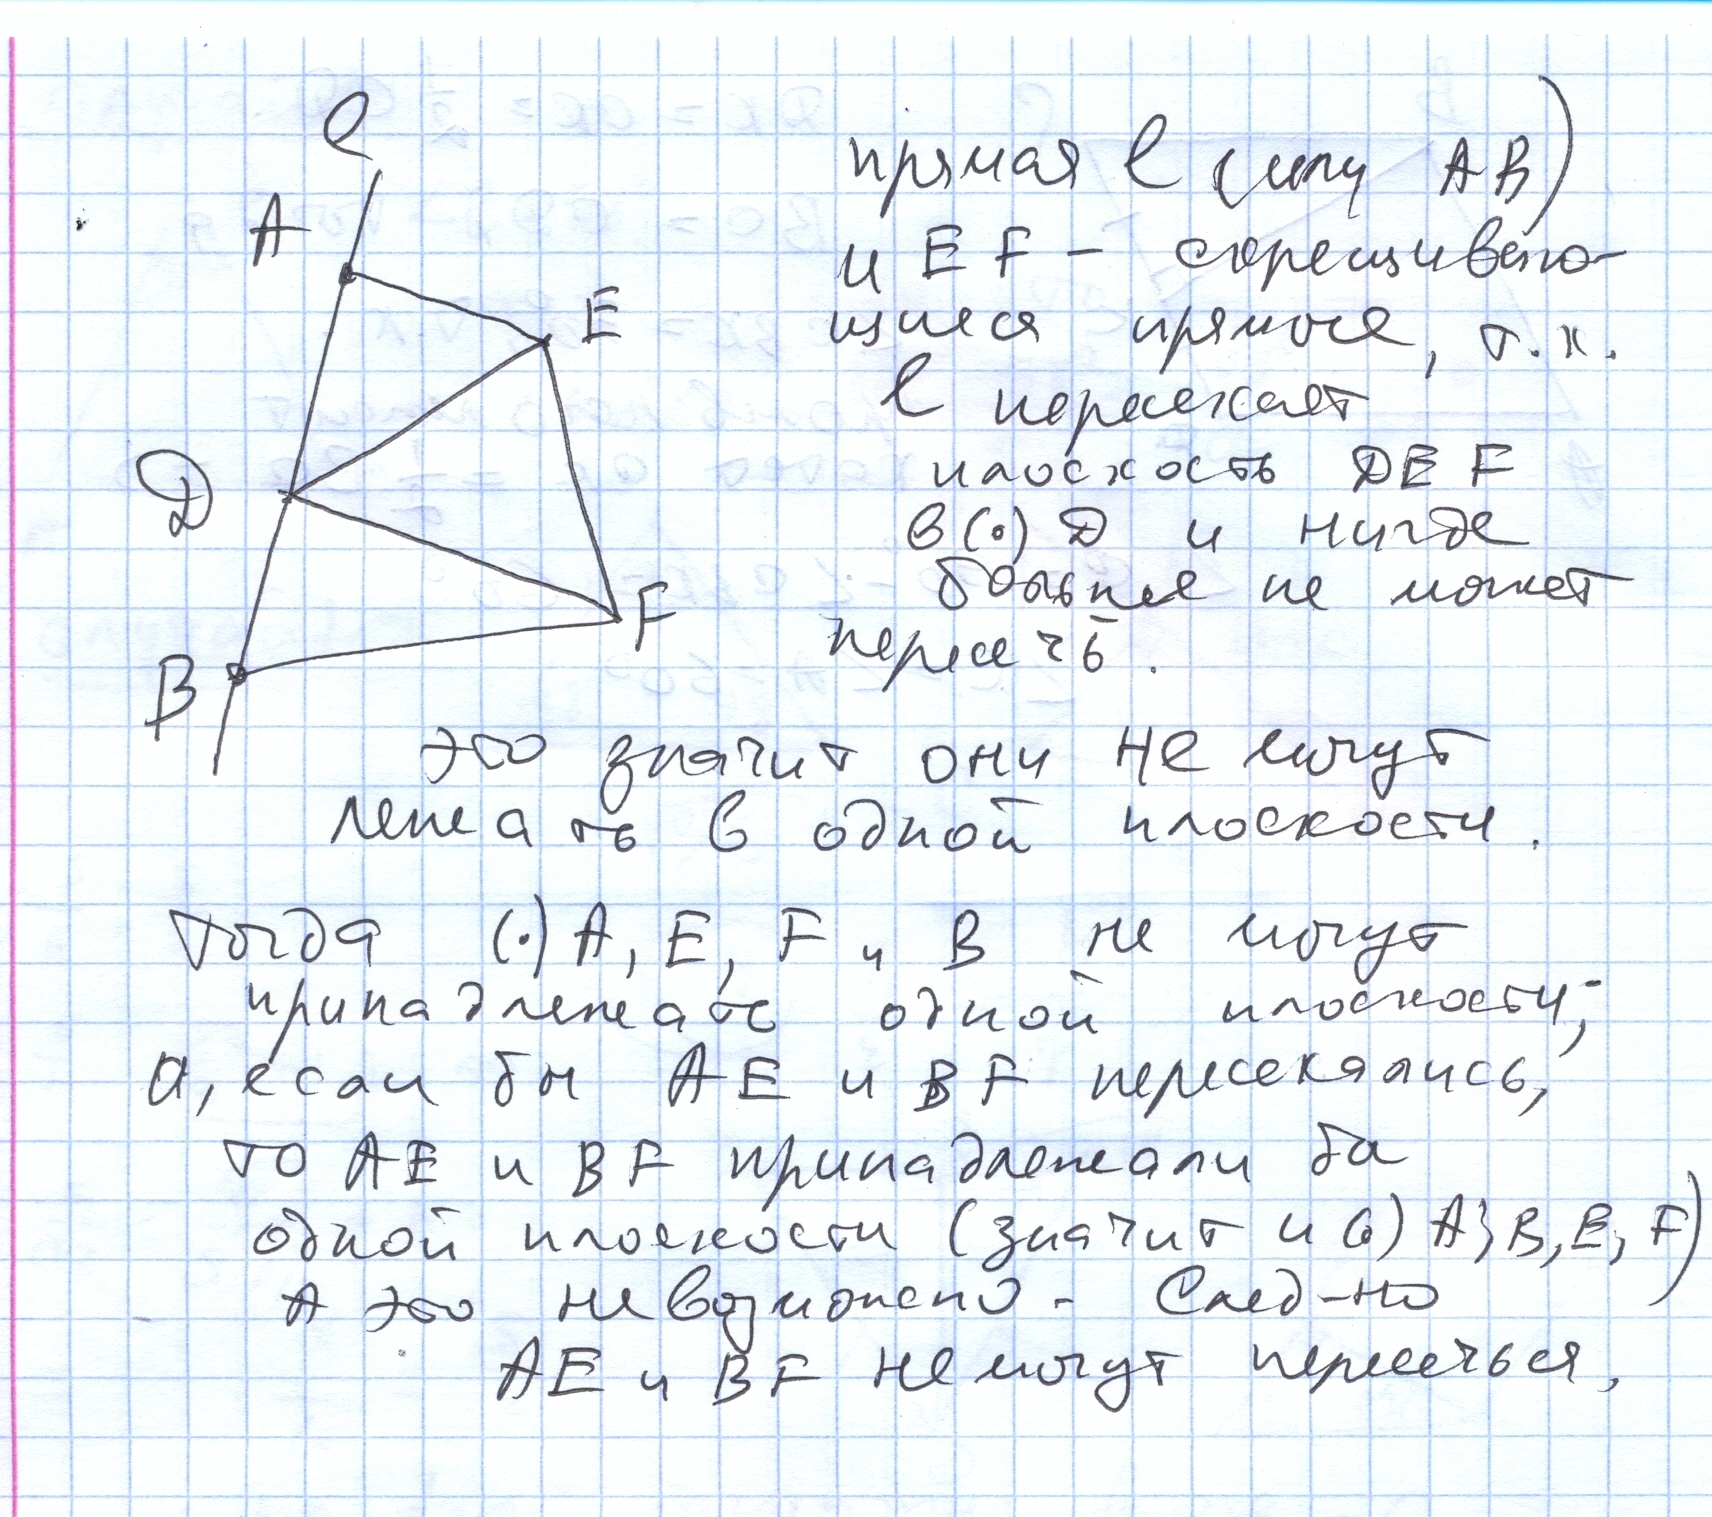 l
A
E
D
F
B
прямая l (или AB)
и EF – скрещиваю-
щиеся прямые, т.к.
l пересекает
плоскость DEF
в (·) D и нигде
больше не может
пересечь.
это значит они не могут
лежать в одной плоскости.
тогда (·) A, E, F и B не могут
принадлежать одной плоскости;
а, если бы AE и BF пересекались,
то AE и BF принадлежали бы
одной плоскости (значит и (·) A, B, E, F)
А это невозможно. След-но
AE и BF не могут пересечься,